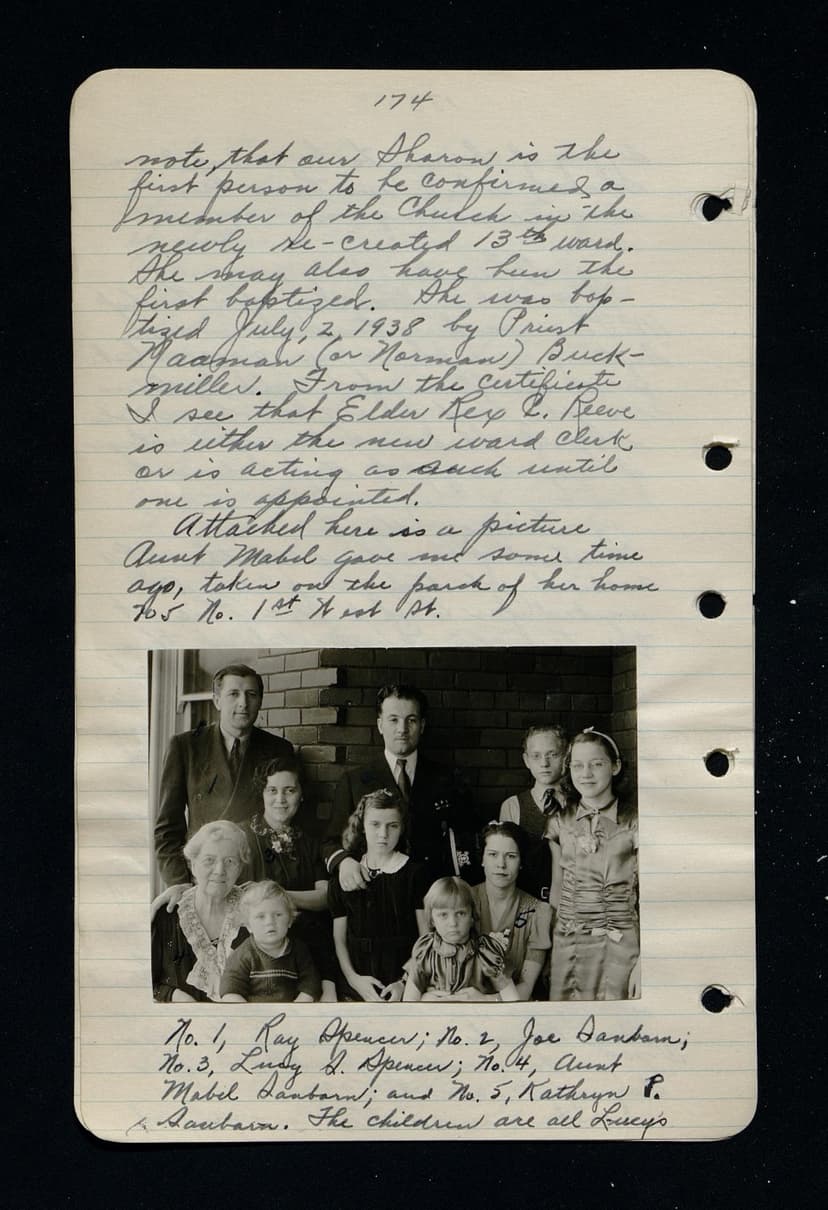 174
note, that our Sharon is the
first person to be confirmed a
member of the Church in the
newly re-created 13th ward.
She may also have been the
first baptized. She was bap-
tized July, 2, 1938 by Priest
Naaman (or Norman) Buck-
miller. From the certificate
I see that Elder Rex C. Reeve
is either the new ward clerk
or is acting as such until
one is appointed.
Attached here is a picture
Aunt Mabel gave me some time
ago, taken on the porch of her home
705 No. 1st West St.
No. 1, Ray Spencer; No. 2, Joe Sanborn;
No. 3, Lucy S. Spencer; No. 4, Aunt
Mabel Sanborn; and No. 5, Kathryn P.
Sanborn. The children are all Lucy's